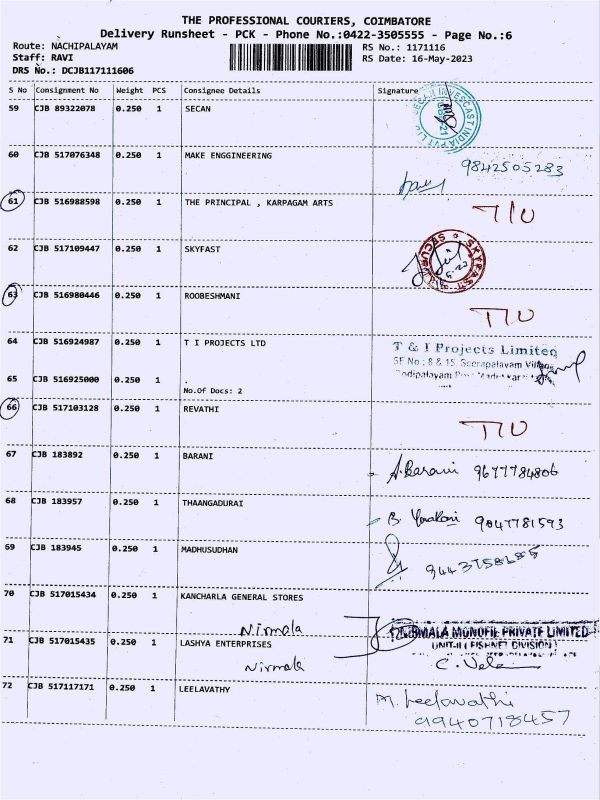 THE PROFESSIONAL COURIERS, COIMBATORE
Delivery Runsheet - PCK - Phone No.:0422-3505555 - Page No.:6
Route: NACHIPALAYAM RS No.: 1171116
Staff: RAVI RS Date: 16-May-2023
DRS No.: DCJB117111606
S No Consignment No Weight PCS Consignee Details Signature
59 CJB 89322078 0.250 1 SECAN
60 CJB 517076348 0.250 1 MAKE ENGGINEERING 9842505283
61 CJB 516988598 0.250 1 THE PRINCIPAL , KARPAGAM ARTS T/U
62 CJB 517109447 0.250 1 SKYFAST
63 CJB 516980446 0.250 1 ROOBESHMANI T/U
64 CJB 516924987 0.250 1 T I PROJECTS LTD T & I Projects Limited
SF No : 8 & 15, Seerapalayam Village
65 CJB 516925000 0.250 1 .
No.Of Docs: 2
66 CJB 517103128 0.250 1 REVATHI T/U
67 CJB 183892 0.250 1 BARANI A.Barani 9677784806
68 CJB 183957 0.250 1 THAANGADURAI B. 9047781593
69 CJB 183945 0.250 1 MADHUSUDHAN
70 CJB 517015434 0.250 1 KANCHARLA GENERAL STORES
Nirmala NIRMALA MONOFIL PRIVATE LIMITED
71 CJB 517015435 0.250 1 LASHYA ENTERPRISES UNIT-II ( FISHNET DIVISION )
Nirmala
72 CJB 517117171 0.250 1 LEELAVATHY M. Leelavathi
9940718457